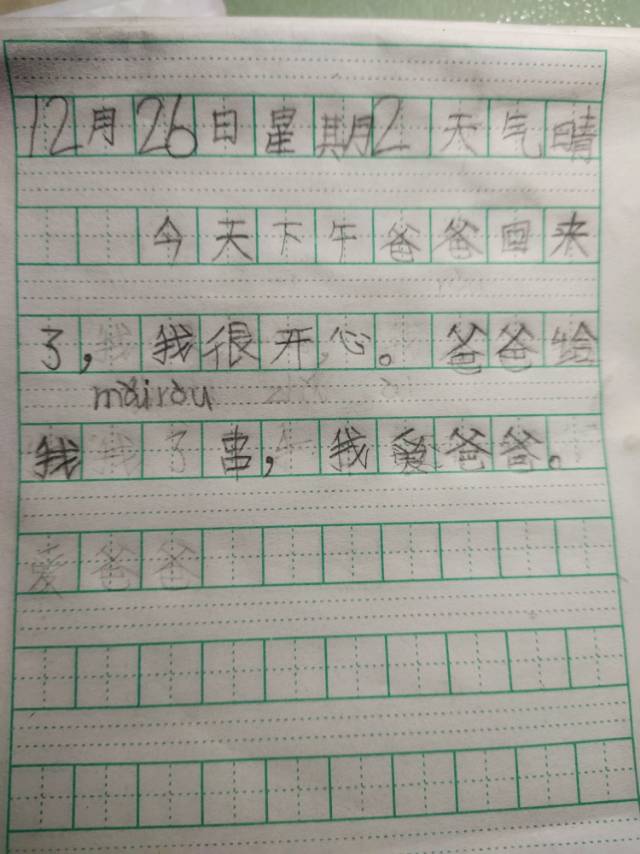 12月26日星期2 天气晴
今天下午爸爸回来
了，我很开心。爸爸给
mǎiròu
我 了串，我爱爸爸。
爱爸爸